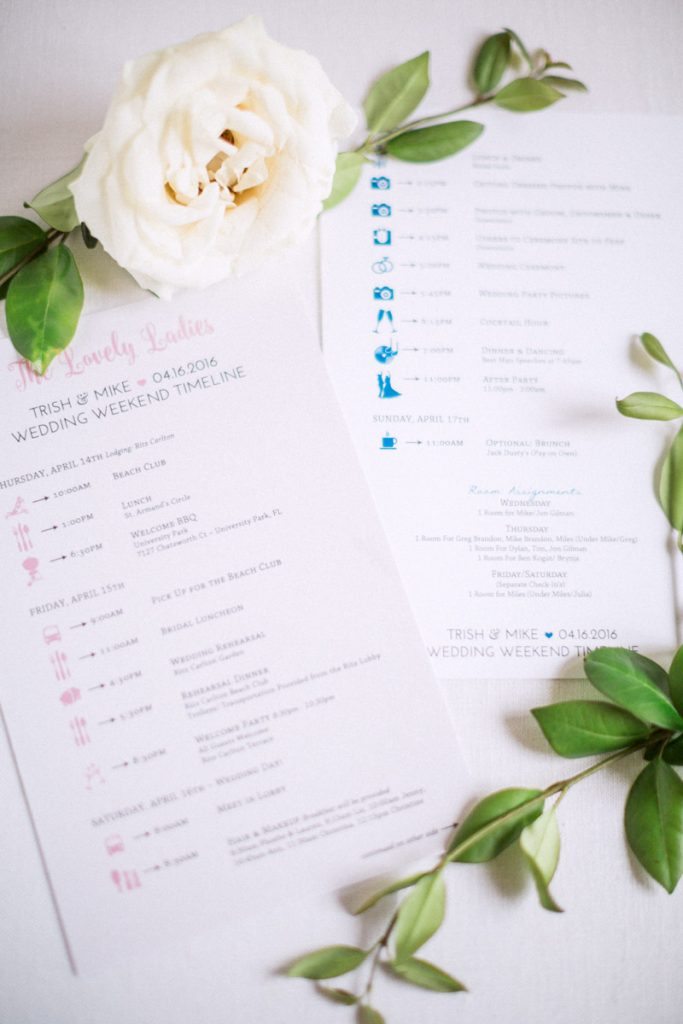 The Lovely Ladies
TRISH & MIKE ♥ 04.16.2016
WEDDING WEEKEND TIMELINE
THURSDAY, APRIL 14TH Lodging: Ritz Carlton
10:00AM BEACH CLUB
1:00PM LUNCH
St. Armand's Circle
6:30PM WELCOME BBQ
University Park
7127 Chatsworth Ct - University Park, FL
FRIDAY, APRIL 15TH
9:00AM PICK UP FOR THE BEACH CLUB
11:00AM BRIDAL LUNCHEON
4:30PM WEDDING REHEARSAL
Ritz Carlton Garden
5:30PM REHEARSAL DINNER
Ritz Carlton Beach Club
Trolleys/ Transportation Provided from the Ritz Lobby
8:30PM WELCOME PARTY 8:30pm - 10:30pm
All Guests Welcome
Ritz Carlton Terrace
SATURDAY, APRIL 16TH - WEDDING DAY!
8:00AM MEET IN LOBBY
8:30AM HAIR & MAKEUP Breakfast will be provided
continued on other side
GETTING DRESSED PHOTOS WITH
PHOTOS WITH GROOM, GROOMSMEN &
USHERS TO CEREMONY SITE TO PREP
5:00PM WEDDING CEREMONY
5:45PM WEDDING PARTY PICTURES
6:15PM COCKTAIL HOUR
7:00PM DINNER & DANCING
Best Man Speeches at 7:30pm
11:00PM AFTER PARTY
11:00pm - 2:00am
SUNDAY, APRIL 17TH
11:00AM OPTIONAL: BRUNCH
Jack Dusty's (Pay on Own)
Room Assignments
WEDNESDAY
1 Room for Mike/Jon Gilman
THURSDAY
1 Room For Greg Brandon, Mike Brandon, Miles (Under Mike/Greg)
1 Room For Dylan, Tim, Jon Gilman
1 Room For Ben Kogut/ Bryna
FRIDAY/SATURDAY
(Separate Check-in's)
1 Room for Miles (Under Miles/Julia)
TRISH & MIKE ♥ 04.16.2016
WEDDING WEEKEND TIMELINE